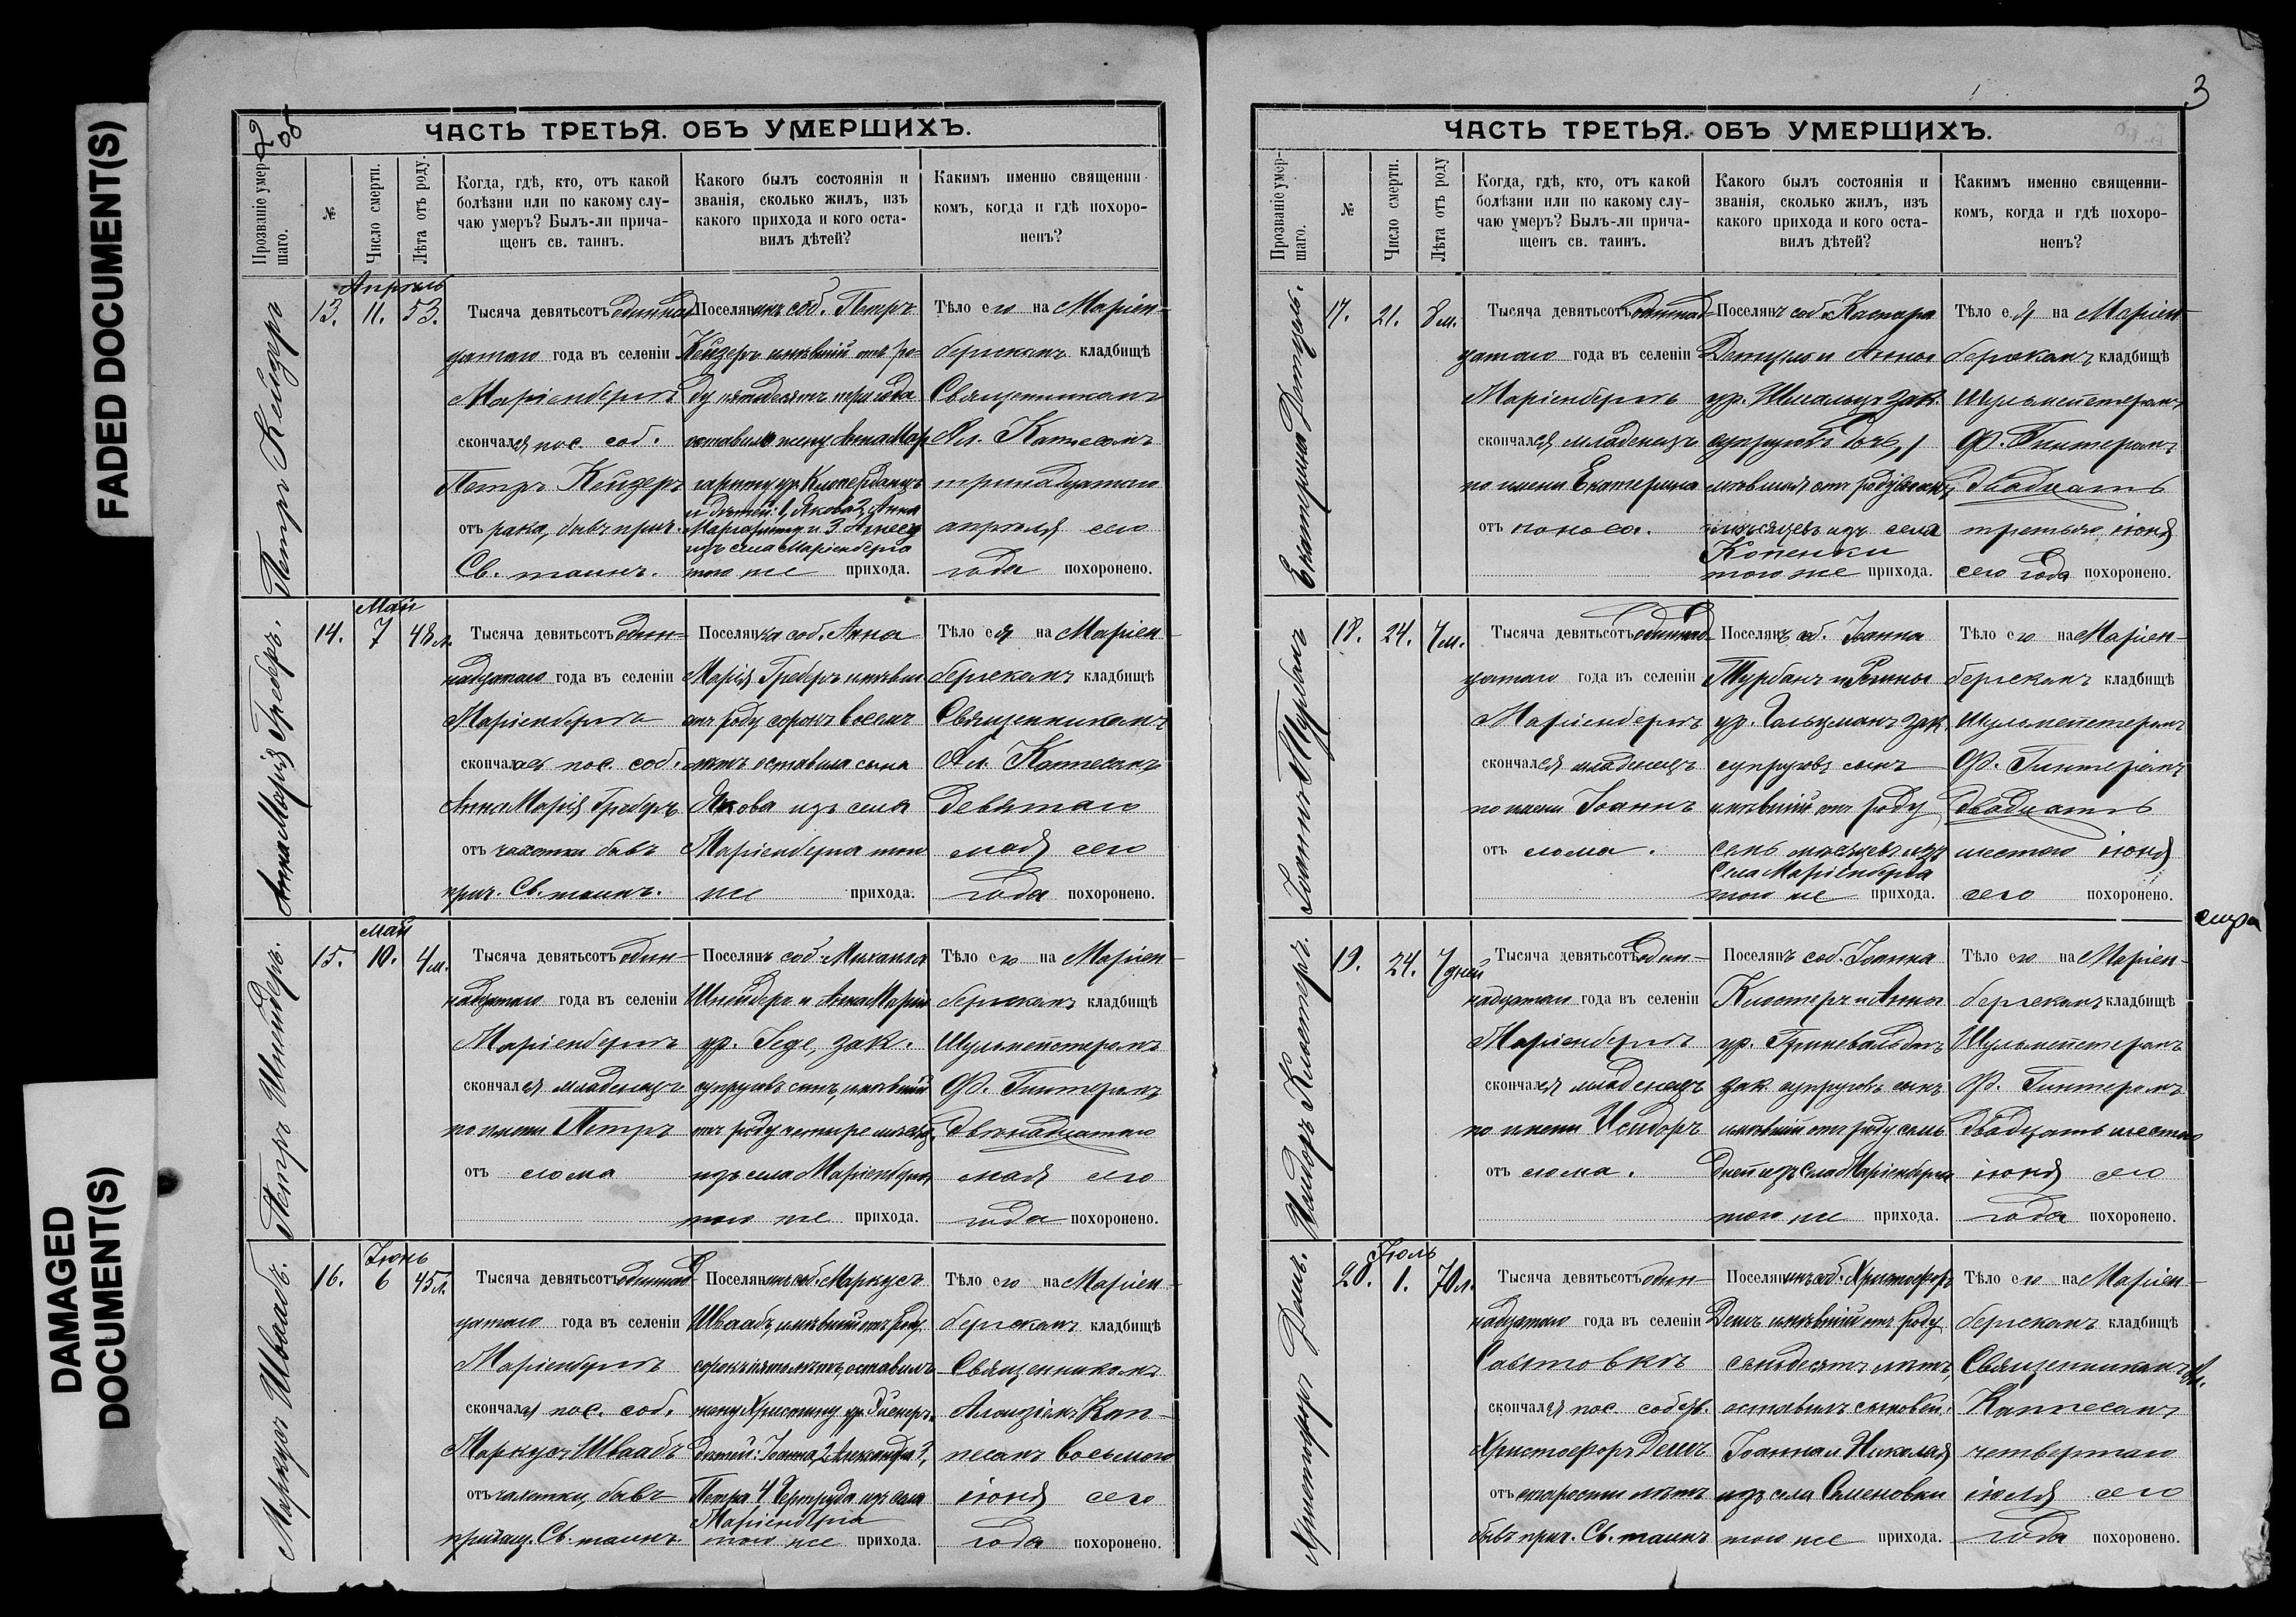 FADED DOCUMENT(S)
DAMAGED
DOCUMENT(S)
2
об
ЧАСТЬ ТРЕТЬЯ. ОБЪ УМЕРШИХЪ.
Прозваніе умер-
шаго.
№
Число смерти.
Лѣта отъ роду.
Когда, гдѣ, кто, отъ какой
болѣзни или по какому слу-
чаю умеръ? Былъ-ли прича-
щенъ св. таинъ.
Какого былъ состоянія и
званія, сколько жилъ, изъ
какого прихода и кого оста-
вилъ дѣтей?
Какимъ именно священни-
комъ, когда и гдѣ похоро-
ненъ?
Петръ Кейзеръ
Апрѣль
13. 11. 53.
Тысяча девятьсотъ одиннад
цатаго года въ селеніи
Маріенбергъ
скончался пос. соб.
Петръ Кейзеръ
отъ рака, бывъ прич.
Св. таинъ.
Поселянинъ соб. Петръ
Кейзеръ имѣвшій отъ ро-
ду пятьдесятъ три года
оставилъ жену Анна Мар
гариту ур.
и дѣтей: 1, Якова 2, Анна
Маргариту и 3. Агнесу
изъ села Маріенберга
того же прихода.
Тѣло его на Маріен-
бергскомъ кладбищѣ
Священникомъ
Ал. Каппесомъ
тринадцатаго
апрѣля сего
года похоронено.
Анна Марія Греберъ.
Май
14. 7 48 л.
Тысяча девятьсотъ один-
надцатаго года въ селеніи
Маріенбергъ
скончалась пос. соб.
Анна Марія Греберъ
отъ чахотки бывъ
прич. Св. таинъ.
Поселянка соб. Анна
Марія Греберъ имѣвш
отъ роду сорокъ восемь
лѣтъ оставила сына
Якова изъ села
Маріенберга того
же прихода.
Тѣло ея на Маріен-
бергскомъ кладбищѣ
Священникомъ
Ал. Каппесомъ
девятаго
мая сего
года похоронено.
Петръ Шнейдеръ.
май
15. 10. 4 м.
Тысяча девятьсотъ один-
надцатаго года въ селеніи
Маріенбергъ
скончался младенецъ
по имени Петръ
отъ слома
Поселянъ соб. Михаила
Шнейдеръ и Анна Маріи
ур. Геде, зак.
супруговъ сынъ, имѣвшій
отъ роду четыре мѣсяц.
изъ села Маріенберга
того же прихода.
Тѣло его на Маріен-
бергскомъ кладбищѣ
Шульмейстеромъ
Ф. Гинтеромъ
двѣнадцатаго
мая сего
года похоронено.
Маркусъ Швабъ.
Іюнь
16. 6 45 л.
Тысяча девятьсотъ одиннад
цатаго года въ селеніи
Маріенбергъ
скончался пос. соб.
Маркусъ Швабъ
отъ чахотки, бывъ
причащ. Св. таинъ.
Поселянинъ соб. Маркусъ
Швабъ, имѣвшій отъ роду
сорокъ пять лѣтъ, оставилъ
жену Христину ур.
дѣтей: Іоанна, 2, Александра 3,
Петра 4 Гертруда изъ села
Маріенберга
того же прихода.
Тѣло его на Маріен-
бергскомъ кладбищѣ
Священникомъ
Алоизіемъ Кап-
песомъ восьмого
іюня сего
года похоронено.
3
ЧАСТЬ ТРЕТЬЯ. ОБЪ УМЕРШИХЪ.
Прозваніе умер-
шаго.
№
Число смерти.
Лѣта отъ роду
Когда, гдѣ, кто, отъ какой
болѣзни или по какому слу-
чаю умеръ? Былъ-ли прича-
щенъ св. таинъ.
Какого былъ состоянія и
званія, сколько жилъ, изъ
какого прихода и кого оста-
вилъ дѣтей?
Какимъ именно священни-
комъ, когда и гдѣ похоро-
ненъ?
Екатерина Детцель.
17. 21. 8 м.
Тысяча девятьсотъ одиннад-
цатаго года въ селеніи
Маріенбергъ
скончался младенецъ
по имени Екатерина
отъ поноса.
Поселянъ соб. Каспара
Детцель и Анны
ур. Шмальцъ зак.
супруговъ дочь,
имѣвшая отъ роду восемь
мѣсяцевъ изъ села
Копенки
того же прихода.
Тѣло ея на Маріен-
бергскомъ кладбищѣ
Шульмейстеромъ
Ф. Гинтеромъ
двадцать
третьяго іюня
сего года похоронено.
Іоаннъ Турбанъ
18. 24. 7 м.
Тысяча девятьсотъ одиннад-
цатаго года въ селеніи
Маріенбергъ
скончался младенецъ
по имени Іоаннъ
отъ слома.
Поселянъ соб. Іоанна
Турбанъ и Регины
ур. Гольцманъ зак.
супруговъ сынъ
имѣвшій отъ роду
семь мѣсяцевъ изъ
села Маріенберга
того же прихода.
Тѣло его на Маріен-
бергскомъ кладбищѣ
Шульмейстеромъ
Ф. Гинтеромъ
двадцать
шестого іюня
сего похоронено.
Исидоръ Клостеръ.
19. 24. 7 дней
Тысяча девятьсотъ один-
надцатаго года въ селеніи
Маріенбергъ
скончался младенецъ
по имени Исидоръ
отъ слома.
Поселянъ соб. Іоанна
Клостеръ и Анны
ур. Гриневальдъ
зак. супруговъ сынъ
имѣвшій отъ роду семь
дней изъ села Маріенберга
того же прихода.
Тѣло его на Маріен-
бергскомъ кладбищѣ
Шульмейстеромъ
Ф. Гинтеромъ
двадцать шестого
іюня сего
года похоронено.
Христофоръ Демъ.
Іюль
20. 1. 70 л.
Тысяча девятьсотъ один-
надцатаго года въ селеніи
скончался пос. собств.
Христофоръ Демъ
отъ старости лѣтъ
бывъ прич. Св. таинъ
Поселянинъ соб. Христофоръ
Демъ имѣвшій отъ роду
семьдесятъ лѣтъ,
оставилъ сыновей:
Іоанна и Николая
изъ села Семеновки
того же прихода.
Тѣло его на Маріен-
бергскомъ кладбищѣ
Священникомъ Ал.
Каппесомъ
четвертаго
іюля сего
года похоронено.